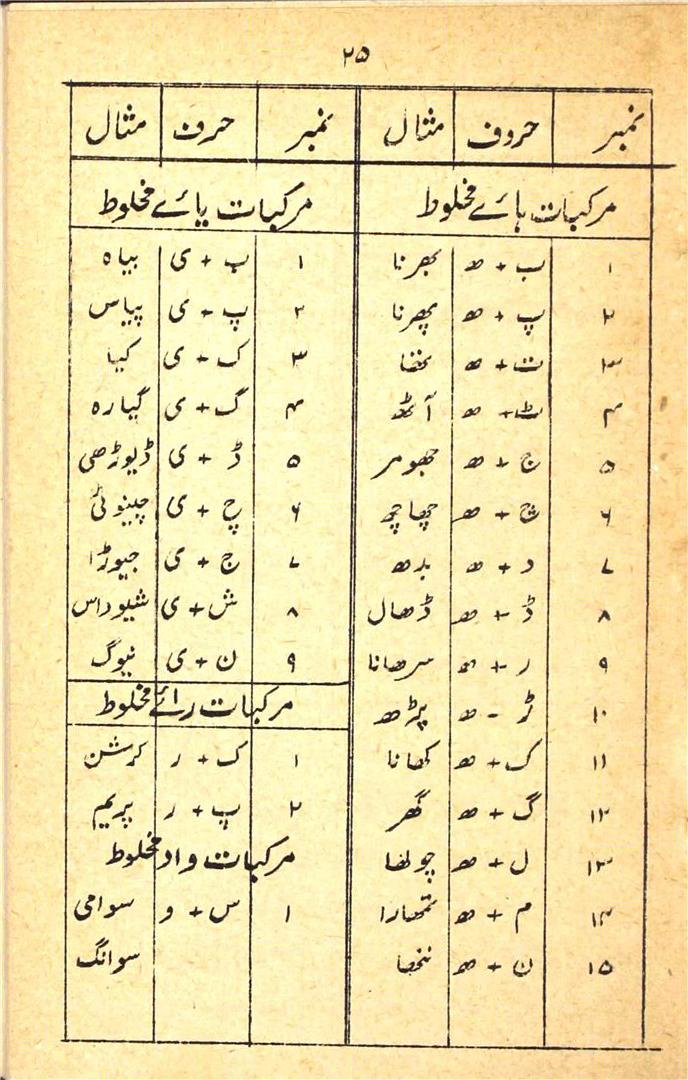 ۲۵
نمبر حروف مثال نمبر حرف مثال
مرکبات ہائے مخلوط
۱ ب + ھ بھرنا
۲ پ + ھ پھرنا
۳ ت + ھ تھا
۴ ٹ + ھ آٹھ
۵ ج + ھ جھومر
۶ چ + ھ چھاچھ
۷ د + ھ بدھ
۸ ڈ + ھ ڈھال
۹ ر + ھ سرھانا
۱۰ ڑ - ھ پڑھ
۱۱ ک + ھ کھانا
۱۲ گ + ھ گھر
۱۳ ل + ھ چولھا
۱۴ م + ھ تمھارا
۱۵ ن + ھ ننھا
مرکبات یائے مخلوط
۱ ب + ی بیاہ
۲ پ + ی پیاس
۳ ک + ی کیا
۴ گ + ی گیارہ
۵ ڈ + ی ڈیوڑھی
۶ چ + ی چیونٹی
۷ ج + ی جیوڑا
۸ ش + ی شیوداس
۹ ن + ی نیوگ
مرکبات رائے مخلوط
۱ ک + ر کرشن
۲ پ + ر پریم
مرکبات واو مخلوط
۱ س + و سوامی
سوانگ